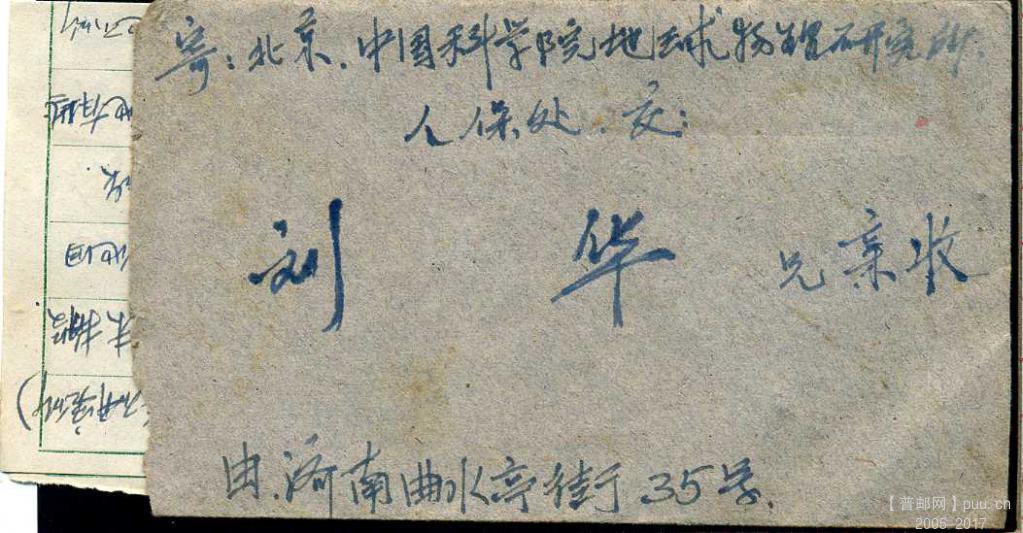 寄：北京．中国科学院地球物理研究所．
人保处．交：
刘 华 兄亲收
由．济南曲水亭街35号．
【普邮网】puu.cn
2005-2017